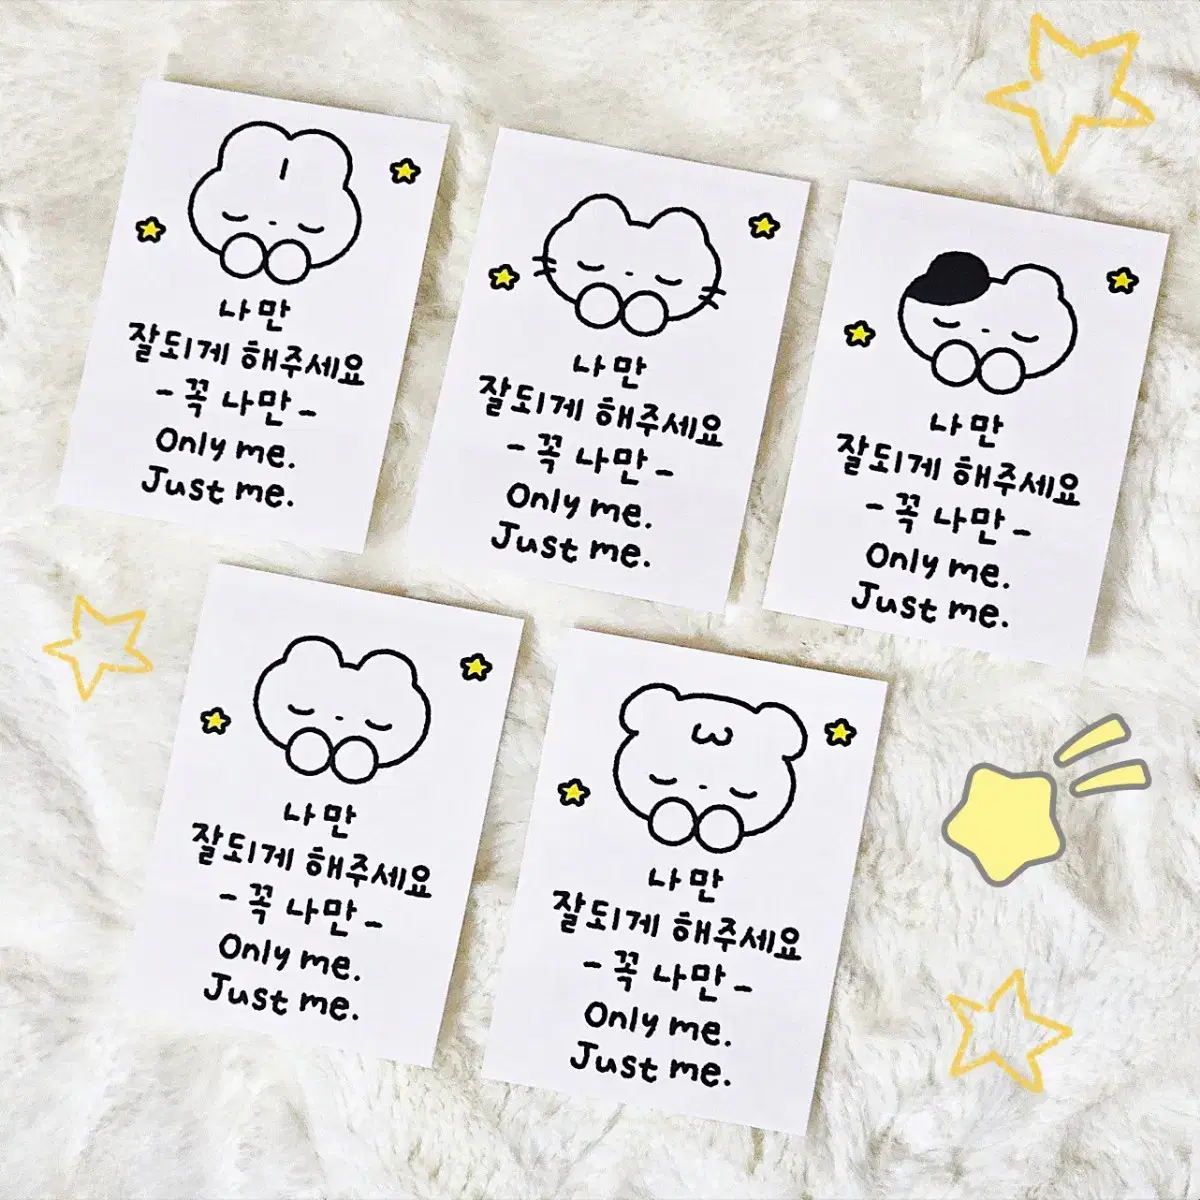 나만
잘되게 해주세요
- 꼭 나만 -
Only me.
Just me.
나만
잘되게 해주세요
- 꼭 나만 -
Only me.
Just me.
나만
잘되게 해주세요
- 꼭 나만 -
Only me.
Just me.
나만
잘되게 해주세요
- 꼭 나만 -
Only me.
Just me.
나만
잘되게 해주세요
- 꼭 나만 -
Only me.
Just me.